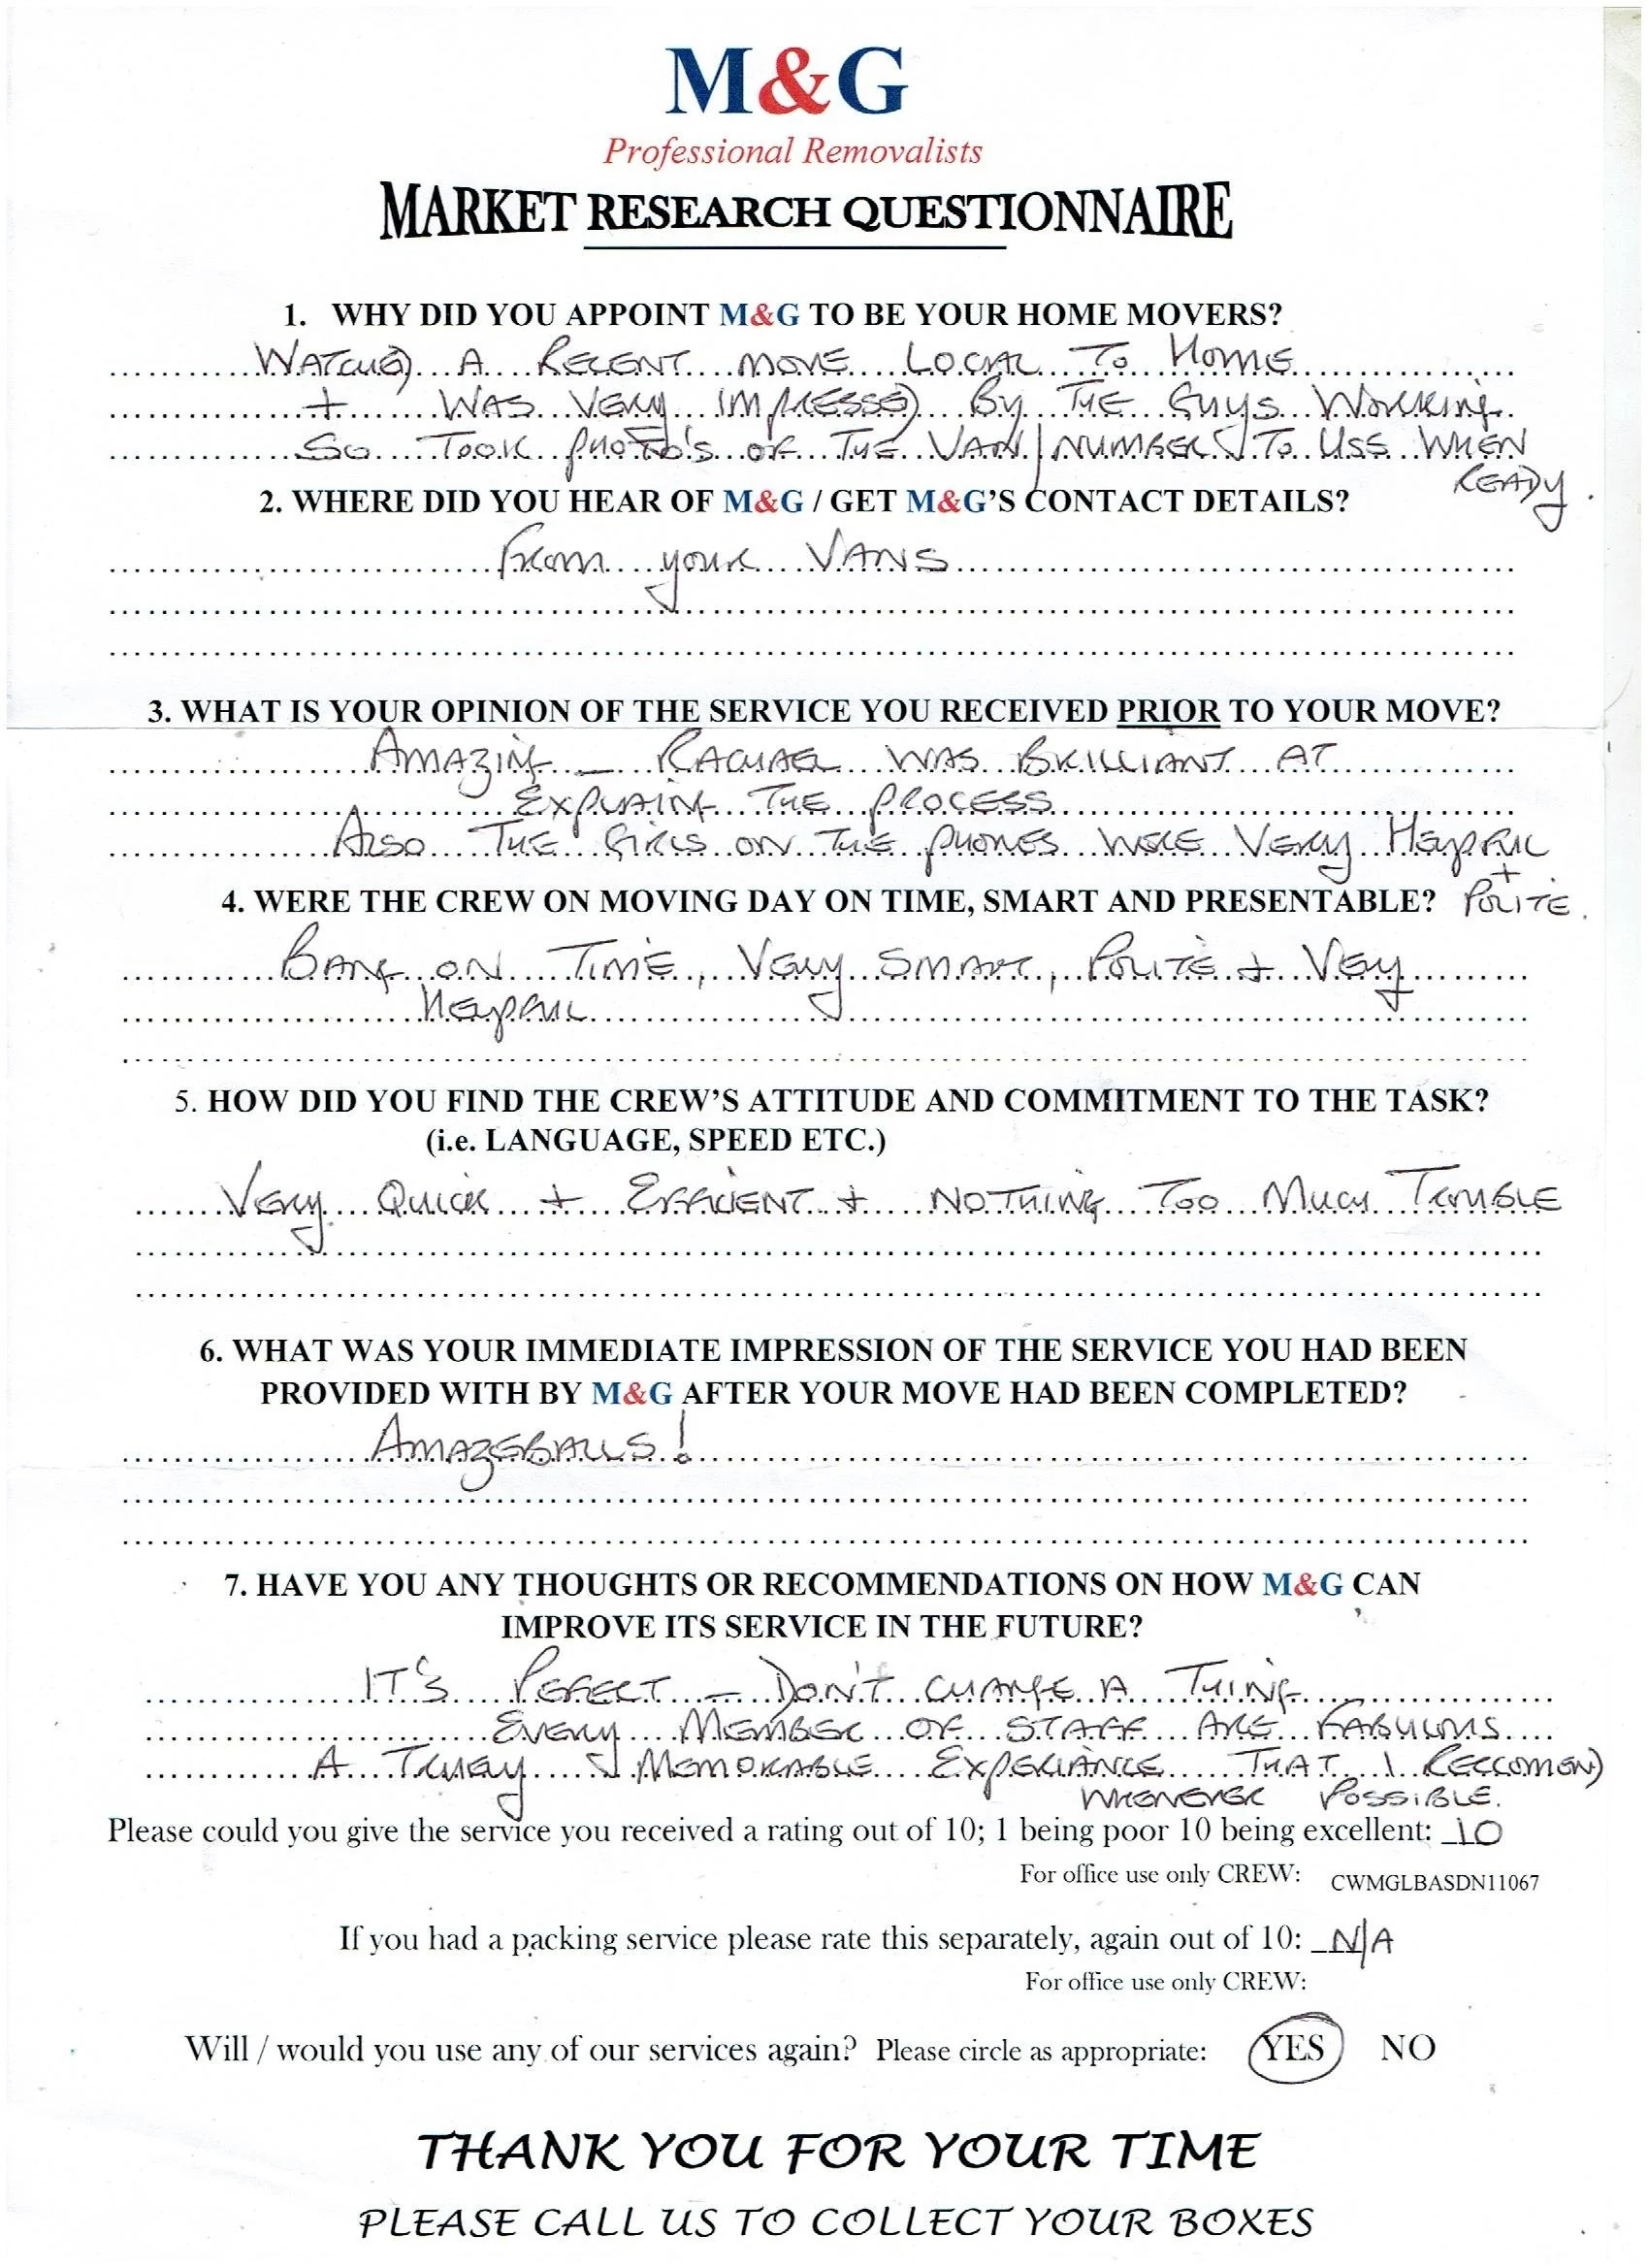 M&G
Professional Removalists
MARKET RESEARCH QUESTIONNAIRE
1. WHY DID YOU APPOINT M&G TO BE YOUR HOME MOVERS?
WATCHED A RECENT MOVE LOCAL TO HOME
+ WAS VERY IMPRESSED BY THE GUYS WORKING
SO TOOK PHOTO'S OF THE VAN/NUMBER TO USE WHEN
READY.
2. WHERE DID YOU HEAR OF M&G / GET M&G'S CONTACT DETAILS?
FROM YOUR VANS
3. WHAT IS YOUR OPINION OF THE SERVICE YOU RECEIVED PRIOR TO YOUR MOVE?
AMAZING - RACHAEL WAS BRILLIANT AT
EXPLAING THE PROCESS
ALSO THE GIRLS ON THE PHONES WERE VERY HELPFUL
+
4. WERE THE CREW ON MOVING DAY ON TIME, SMART AND PRESENTABLE? POLITE.
BANG ON TIME, VERY SMART, POLITE + VEY
HELPFUL
5. HOW DID YOU FIND THE CREW'S ATTITUDE AND COMMITMENT TO THE TASK?
(i.e. LANGUAGE, SPEED ETC.)
VERY QUICK + EFFICIENT + NOTHING TOO MUCH TROUBLE
6. WHAT WAS YOUR IMMEDIATE IMPRESSION OF THE SERVICE YOU HAD BEEN
PROVIDED WITH BY M&G AFTER YOUR MOVE HAD BEEN COMPLETED?
AMAZEBALLS!
7. HAVE YOU ANY THOUGHTS OR RECOMMENDATIONS ON HOW M&G CAN
IMPROVE ITS SERVICE IN THE FUTURE?
IT'S PEFECT - DON'T CHANGE A THING
EVERY MEMBER OF STAFF ARE FABULOUS
A TRUEY MEMORABLE EXPERIANCE THAT I RECCOMEND
WHENEVER POSSIBLE.
Please could you give the service you received a rating out of 10; 1 being poor 10 being excellent: 10
For office use only CREW: CWMGLBASDN11067
If you had a packing service please rate this separately, again out of 10: N/A
For office use only CREW:
Will / would you use any of our services again? Please circle as appropriate: YES NO
THANK YOU FOR YOUR TIME
PLEASE CALL US TO COLLECT YOUR BOXES